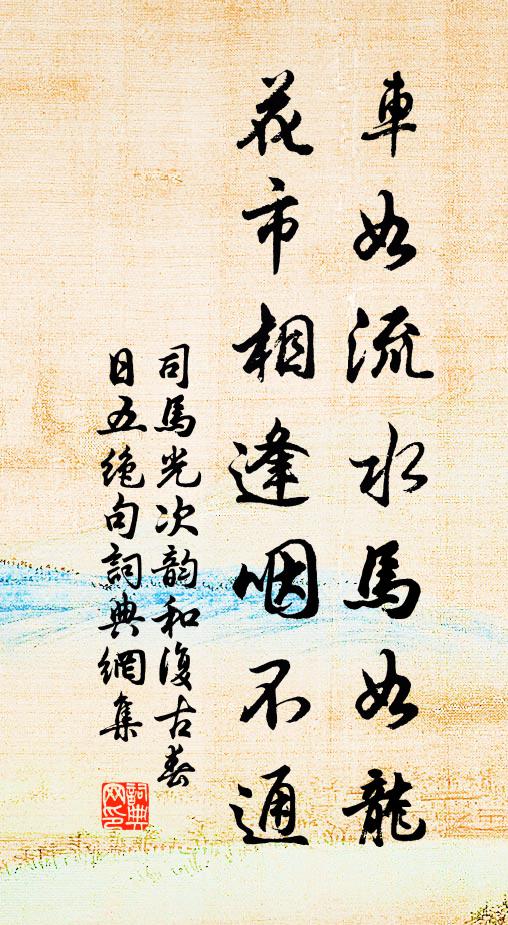 車如流水馬如龍
花市相逢咽不通
司馬光次韵和復古春
日五絶句詞典網集
詞典網印